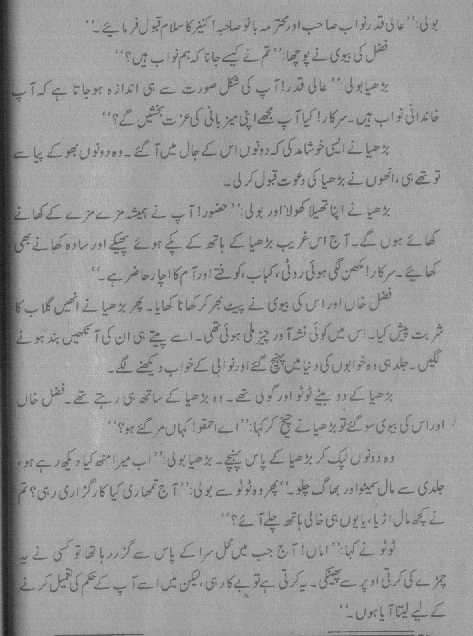 بولی:”عالی قدر نواب صاحب اور محترمہ بانو صاحبہ! کنیز کا سلام قبول فرمایئے۔“
فضل کی بیوی نے پوچھا:”تم نے کیسے جانا کہ ہم نواب ہیں؟“
بڑھیا بولی:”عالی قدر! آپ کی شکل صورت سے ہی اندازہ ہو جاتا ہے کہ آپ
خاندانی نواب ہیں۔ سرکار! کیا آپ مجھے اپنی میزبانی کی عزت بخشیں گے؟“
بڑھیا نے ایسی خوشامد کی کہ دونوں اس کے جال میں آ گئے۔ وہ دونوں بھوکے پیاسے
تو تھے ہی، انھوں نے بڑھیا کی دعوت قبول کر لی۔
بڑھیا نے اپنا تھیلا کھولا اور بولی:”حضور! آپ نے ہمیشہ مزے مزے کے کھانے
کھائے ہوں گے۔ آج اس غریب بڑھیا کے ہاتھ کے پکے ہوئے پھیکے اور سادہ کھانے بھی
کھایئے۔ سرکار! مکھن لگی ہوئی روٹی، کباب، کوفتے اور آم کا اچار حاضر ہے۔“
فضل خاں اور اس کی بیوی نے پیٹ بھر کر کھانا کھایا۔ پھر بڑھیا نے انھیں گلاب کا
شربت پیش کیا۔ اس میں کوئی نشہ آور چیز ملی ہوئی تھی۔ اسے پیتے ہی ان کی آنکھیں بند ہونے
لگیں۔ جلد ہی وہ خوابوں کی دنیا میں پہنچ گئے اور نوابی کے خواب دیکھنے لگے۔
بڑھیا کے دو بیٹے ٹوٹو اور گولی تھے۔ وہ بڑھیا کے ساتھ ہی رہتے تھے۔ فضل خاں
اور اس کی بیوی سو گئے تو بڑھیا نے چیخ کر کہا:”اے احمقو! کہاں مر گئے ہو؟“
وہ دونوں لپک کر بڑھیا کے پاس پہنچے۔ بڑھیا بولی:”اب میرا منھ کیا دیکھ رہے ہو،
جلدی سے مال سمیٹو اور بھاگ چلو۔“ پھر وہ ٹوٹو سے بولی:”آج تمھاری کیا کارگزاری رہی؟ تم
نے کچھ مال اڑایا، یا یوں ہی خالی ہاتھ چلے آئے؟“
ٹوٹو نے کہا:”اماں! آج جب میں محل سرا کے پاس سے گزر رہا تھا تو کسی نے یہ
چمڑے کی کرتی اوپر سے پھینکی۔ یہ کرتی ہے تو بے کار ہی، لیکن میں اسے آپ کے حکم کی تعمیل کرنے
کے لیے لیتا آیا ہوں۔“